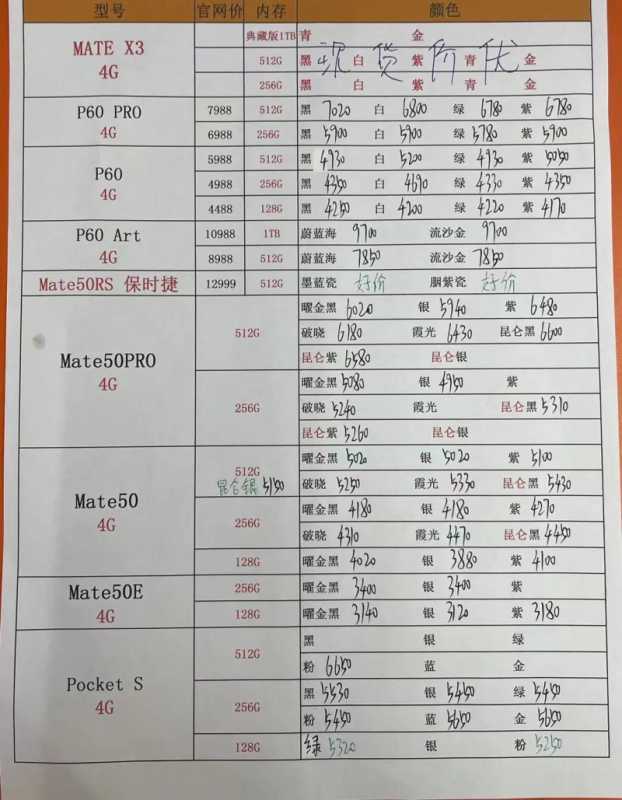 型号 官网价 内存 颜色
典藏版1TB 青 金
MATE X3 512G 黑 白 紫 青 金
现货价优
4G 256G 黑 白 紫 青 金
P60 PRO 7988 512G 黑 7020 白 6800 绿 6780 紫 6780
4G 6988 256G 黑 5900 白 5900 绿 5780 紫 5900
5988 512G 黑 4930 白 5200 绿 4930 紫 5050
P60 4988 256G 黑 4350 白 4690 绿 4330 紫 4350
4G 4488 128G 黑 4250 白 4200 绿 4220 紫 4170
P60 Art 10988 1TB 蔚蓝海 9700 流沙金 9700
4G 8988 512G 蔚蓝海 7850 流沙金 7850
Mate50RS 保时捷 12999 512G 墨蓝瓷 好价 胭紫瓷 好价
曜金黑 6020 银 5940 紫 6480
512G 破晓 6180 霞光 6430 昆仑黑 6600
昆仑紫 6580 昆仑银
Mate50PRO
4G
曜金黑 5080 银 4950 紫
256G 破晓 5240 霞光 昆仑黑 5310
昆仑紫 5260 昆仑银
512G 曜金黑 5020 银 5020 紫 5100
昆仑银 5150 破晓 5250 霞光 5330 昆仑黑 5430
Mate50 曜金黑 4180 银 4180 紫 4270
4G 256G 破晓 4310 霞光 4470 昆仑黑 4450
128G 曜金黑 4020 银 3880 紫 4100
Mate50E 256G 曜金黑 3400 银 3400 紫
4G 128G 曜金黑 3140 银 3120 紫 3180
黑 银 绿
512G 粉 6650 蓝 金
Pocket S 黑 5530 银 5450 绿 5450
4G 256G 粉 5450 蓝 5650 金 5650
128G 绿 5320 银 粉 5250